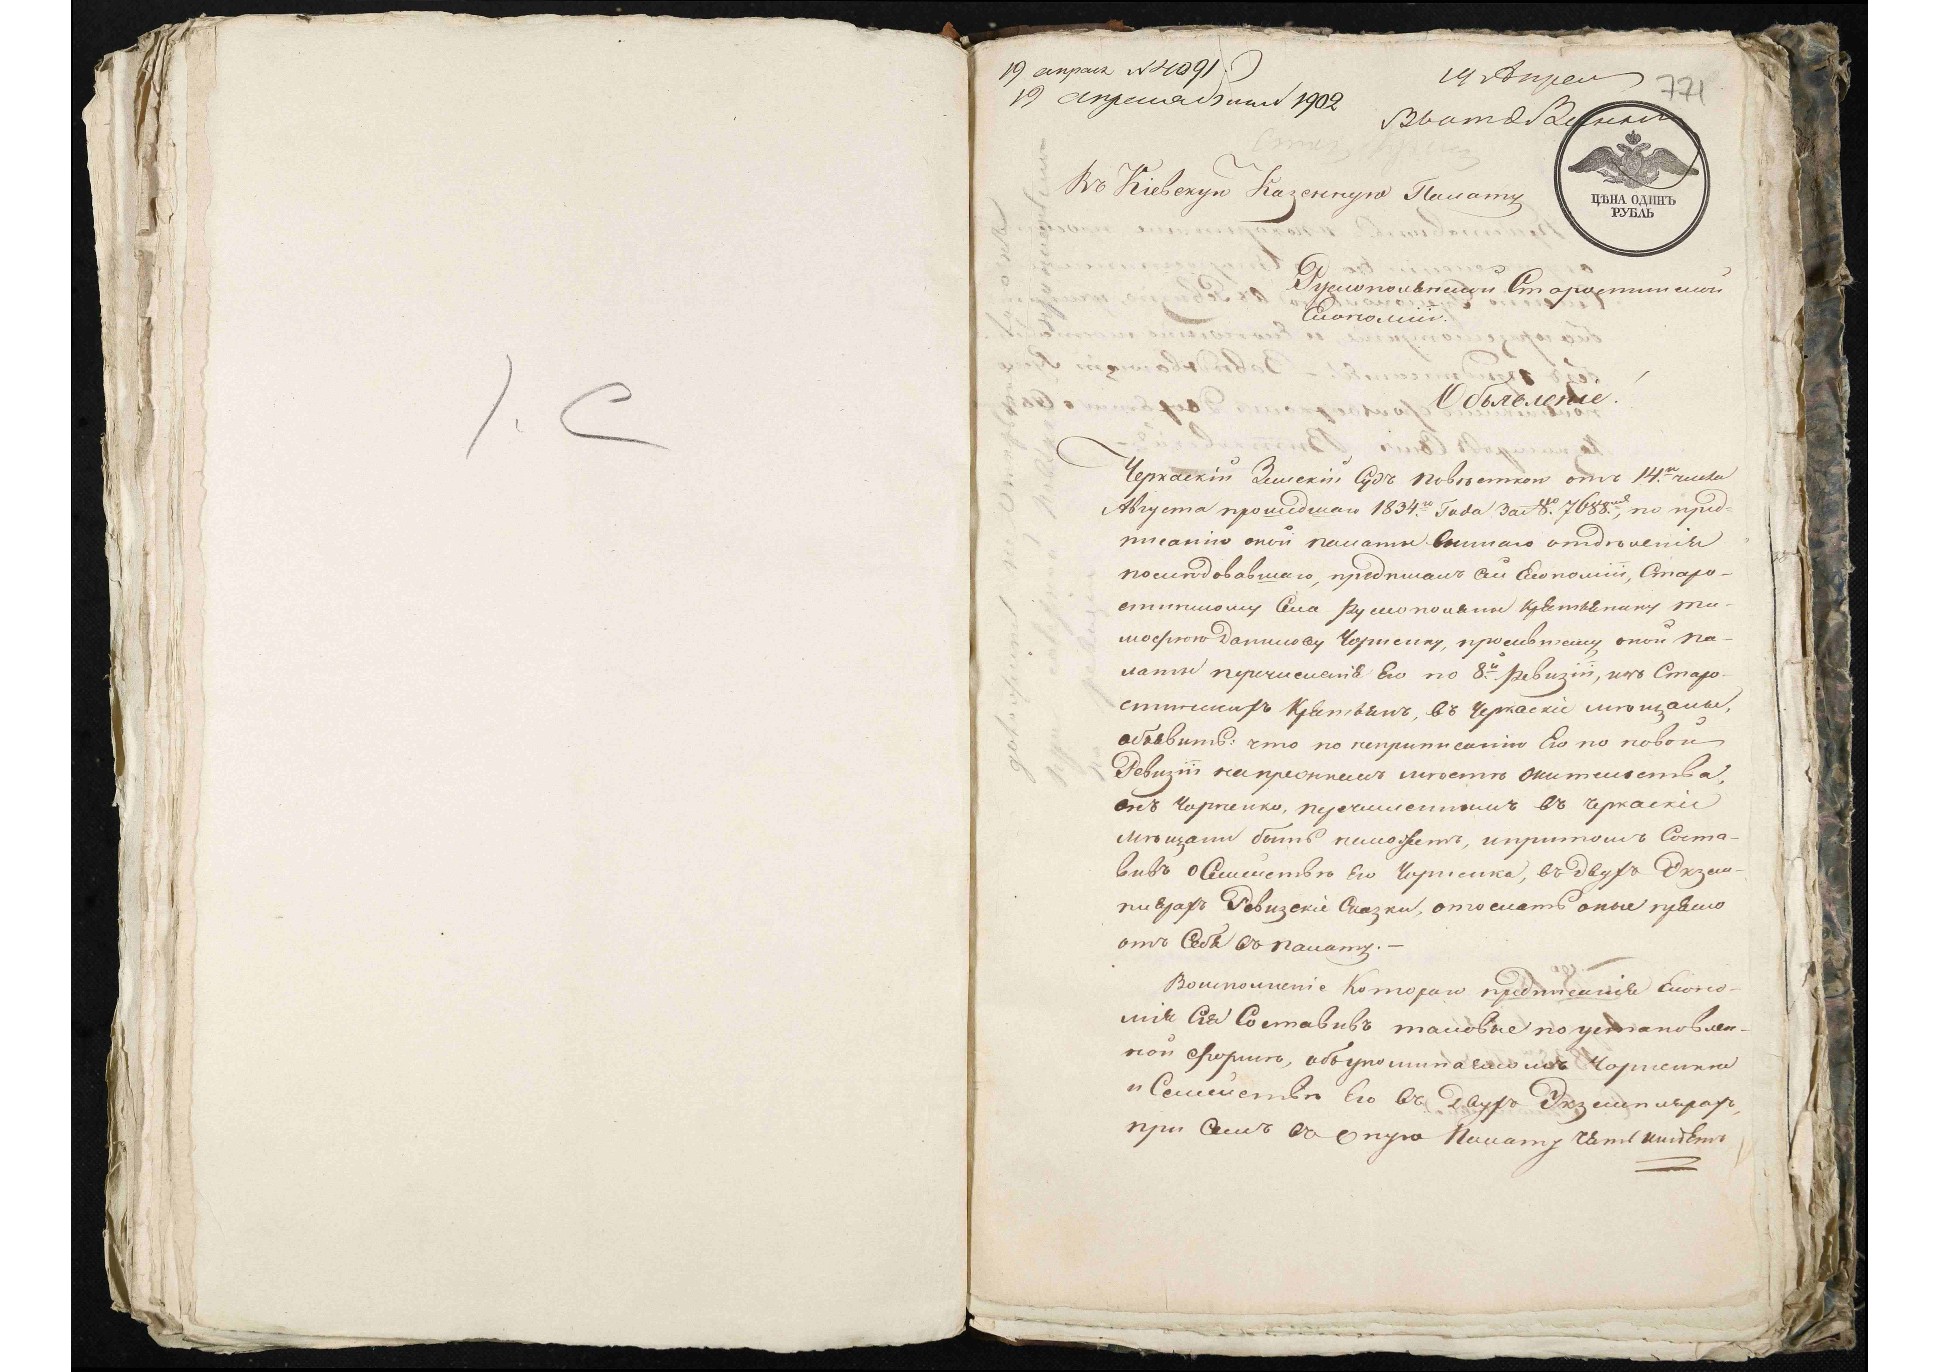 1. С
19 апреля №4091
19 апреля 1902
19 Апреля
771
ЦѢНА ОДИНЪ
РУБЛЬ
Въ Кіевскую Казенную Палату
Русскополянской Старостинской
Економіи.
Объявленіе!
Черкаскій Земскій Судъ повѣсткою отъ 14го числа
Августа прошедшаго 1834го Года за № 7688мъ, по пред-
писанію оной палаты отдѣленія
послѣдовавшаго, предписалъ сей Економіи, Старо-
стинскому Села Русскополяни Крѣстьянину Ти-
мофѣю Данилову Чорненку, просившему оной Па-
латы перечисленія Его по 8й Ревизіи, изъ Старо-
стинскихъ Крѣстьянъ, въ Черкаскіе мѣщаны,
объявить: что по неприписанію Его по новой
Ревизіи на прежнемъ мѣстѣ жительства,
онъ Чорненко, перечисленнымъ въ Черкаскіе
Мѣщани быть неможетъ, и притомъ Соста-
вивъ о Семействѣ Его Чорненка, въ двухъ Экзем-
плярахъ Ревизскіе Сказки, отослать оные прямо
отъ Себя въ палату. —
Воисполненіе Котораго предписанія Еконо-
мія Сія Составивъ таковые по установлен-
ной формѣ, объ упоминаемомъ Чорненкѣ
и Семействѣ Его въ двухъ Экземплярахъ,
при семъ въ оную Палату честь имѣетъ